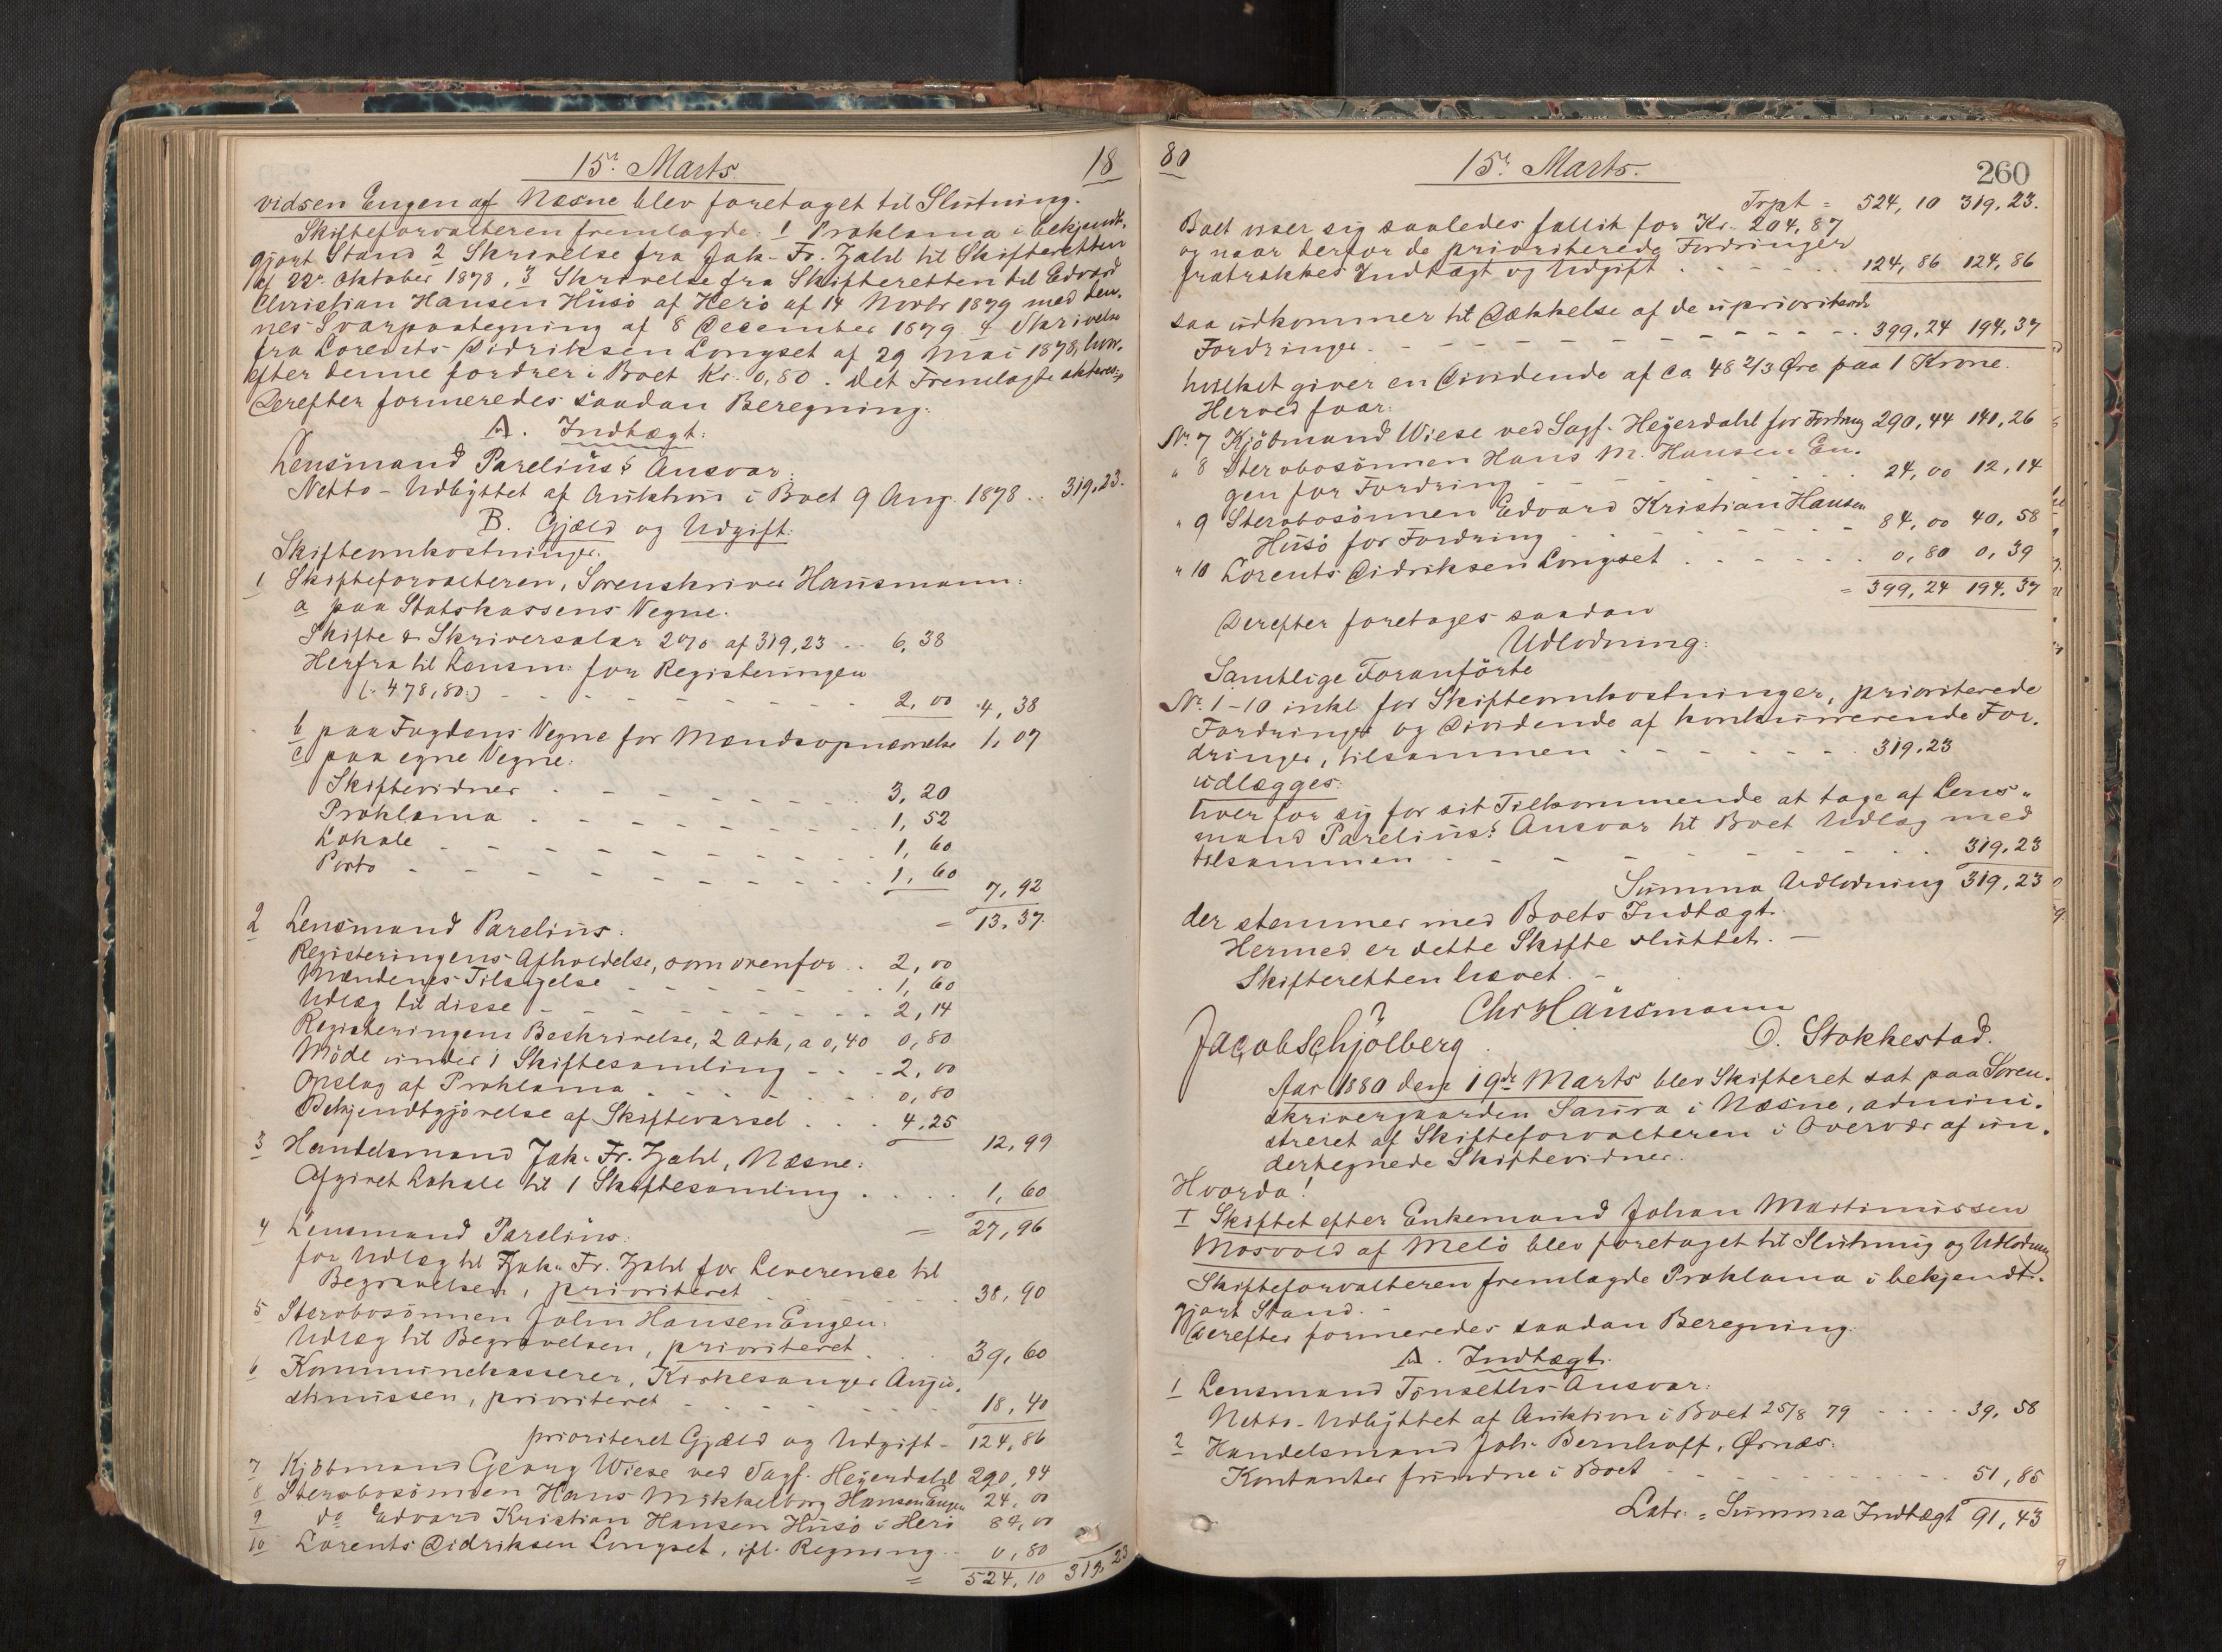 15de Marts. 18
vidsen Engen af Næsne blev foretaget til Slutning.
Skifteforvalteren fremlagde: 1 Proklama i bekjendt-
gjort Stand 2 Skrivelse fra Jak. Fr. Zahl til Skifteretten
af 22de Oktober 1878, 3 Skrivelse fra Skifteretten til Edvard
Christian Hansen Husö af Herö af 14 Novbr 1879 med den-
nes Svarpaategning af 8 December 1879. 4 Skrivelse
fra Lorents Didriksen Longset af 29 Mai 1878, hvor-
efter denne fordrer i Boet Kr. 0,80. Det Fremlagte akteres.
Derefter formeredes saadan Beregning:
A. Indtægt:
Lensmand Parelius's Ansvar:
Netto-Udbyttet af Auktion i Boet 9 Aug. 1878 .. 319,23.
B. Gjæld og Udgift:
Skifteomkostninger.
1 Skifteforvalteren, Sorenskriver Hausmann:
a paa Statskassens Vegne.
Skifte & Skriversalær 2% af 319,23 .. 6,38
Herfra til Lensm: for Registeringen
(: 478,80:) 2,00 4,38
b paa Fogdens Vegne for Mændsopnævnelse 1,07
c paa egne Vegne:
Skiftevidner 3,20
Proklama 1,52
Lokale 1,60
Porto 1,60
7,92
= 13,37
2 Lensmand Parelius:
Registeringens Afholdelse, som ovenfor .. 2,00
Mændenes Tilsigelse 1,60
Udlæg til disse 2,14
Registeringens Beskrivelse, 2 Ark, a 0,40 0,80
Möde under 1 Skiftesamling 2,00
Opslag af Proklama 0,80
Bekjendtgjörelse af Skiftevarsel 4,25
12,99
3 Handelsmand Jak. Fr. Zahl, Næsne:
Afgivet Lokale til 1 Skiftesamling 1,60
= 27,96
4 Lensmand Parelius:
for Udlæg til Jak. Fr. Zahl for Leverence til
Begravelsen, prioriteret 38,90
5 Stervbosönnen John Hansen Engen:
Udlæg til Begravelsen, prioriteret 39,60
6 Kommunekasserer, Kirkesanger Augu-
stinussen, prioriteret 18,40
prioriteret Gjæld og Udgift 124,86
7 Kjöbmand Georg Wiese ved Sagf. Heyerdahl 290,44
8 Stervbosönnen Hans Mikkelborg Hansen Engen 24,00
9 do Edvard Kristian Hansen Husö i Herö 84,00
10 Lorents Didriksen Longset, ifl. Regning 0,80
= 524,10 319,23
80 15de Marts. 260
Trpt = 524,10 319,23.
Boet viser sig saaledes fallit for Kr. 204,87
og naar derfor de prioriterede Fordringer
fratrækkes Indtægt og Udgift 124,86 124,86
saa udkommer til Dækkelse af de uprioriterede
Fordringer 399,24 194,37
hvilket giver en Dividende af ca 48 2/3 Øre paa 1 Krone.
Herved faar:
No. 7 Kjöbmand Wiese ved Sagf. Heyerdahl for Fordring 290,44 141,26
" 8 Stervbosönnen Hans M. Hansen En-
gen for Fordring 24,00 12,14
" 9 Stervbosönnen Edvard Kristian Hansen
Husö for Fordring 84,00 40,58
" 10 Lorents Didriksen Longset 0,80 0,39
= 399,24 194,37
Derefter foretages saadan
Udlodning:
Samtlige Foranförte
No. 1-10 inkl for Skifteomkostninger, prioriterede
Fordringer og Dividende af konkurrerende For-
dringer, tilsammen 319,23
udlægges:
hver for sig for sit Tilkommende at tage af Lens-
mand Parelius's Ansvar til Boet Udlæg med
tilsammen 319,23
Summa Udlodning 319,23
der stemmer med Boets Indtægt.
Hermed er dette Skifte sluttet. —
Skifteretten hævet. –
Chr Hausmann
Jacob Schjölberg. O. Stokkestad.
Aar 1880 den 19de Marts blev Skifteret sat paa Soren-
skrivergaarden Saura i Næsne, admini-
streret af Skifteforvalteren i Overvær af un-
dertegnede Skiftevidner.
Hvorda!
I Skiftet efter Enkemand Johan Martinussen
Mosvold af Melö blev foretaget til Slutning og Udlodning
Skifteforvalteren fremlagde Proklama i bekjendt-
gjort Stand. –
Derefter formeredes saadan Beregning:
A. Indtægt.
1 Lensmand Tönseths Ansvar:
Netto-Udbyttet af Auktion i Boet 25/8 79 39,58
2 Handelsmand Joh. Bernhoff, Ørnæs:
Kontanter fundne i Boet 51,85
Latr. = Summa Indtægt 91,43